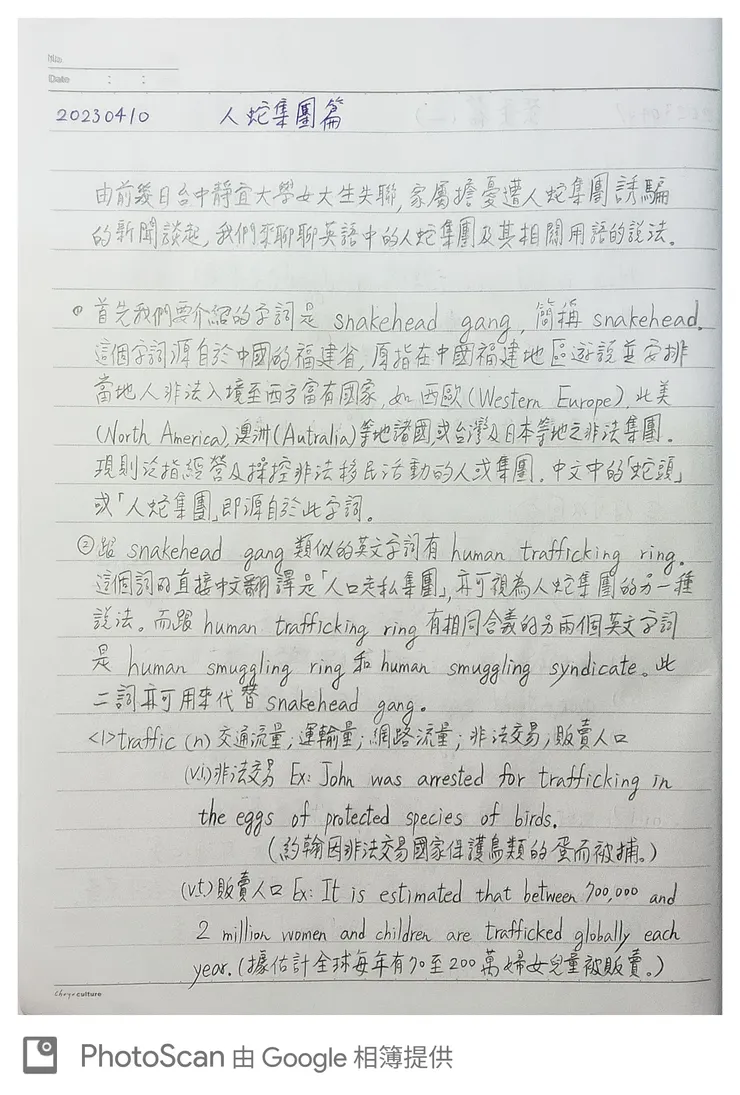 No.
Date : :
20230410 人蛇集團篇
由前幾日台中靜宜大學女大生失聯,家屬擔憂遭人蛇集團誘騙
的新聞談起,我們來聊聊英語中的人蛇集團及其相關用語的說法。
① 首先我們要介紹的字詞是 snakehead gang,簡稱 snakehead.
這個字詞源自於中國的福建省,原指在中國福建地區遊說並安排
當地人非法入境至西方富有國家,如西歐(Western Europe),北美
(North America),澳洲(Autralia)等地諸國或台灣及日本等地之非法集團。
現則泛指經營及操控非法移民活動的人或集團.中文中的「蛇頭」
或「人蛇集團」即源自於此字詞。
②跟 snakehead gang 類似的英文字詞有 human trafficking ring。
這個詞的直接中文翻譯是「人口走私集團」,亦可視為人蛇集團的另一種
說法。而跟 human trafficking ring 有相同含義的另兩個英文字詞
是 human smuggling ring 和 human smuggling syndicate。此
二詞亦可用來代替 snakehead gang。
<1>traffic (n) 交通流量;運輸量;網路流量;非法交易;販賣人口
(v.i)非法交易 Ex: John was arrested for trafficking in
the eggs of protected species of birds.
(約翰因非法交易國家保護鳥類的蛋而被捕。)
(v.t)販賣人口 Ex: It is estimated that between 700,000 and
2 million women and children are trafficked globally each
year.(據估計全球每年有70至200萬婦女兒童被販賣。)
PhotoScan 由 Google 相簿提供